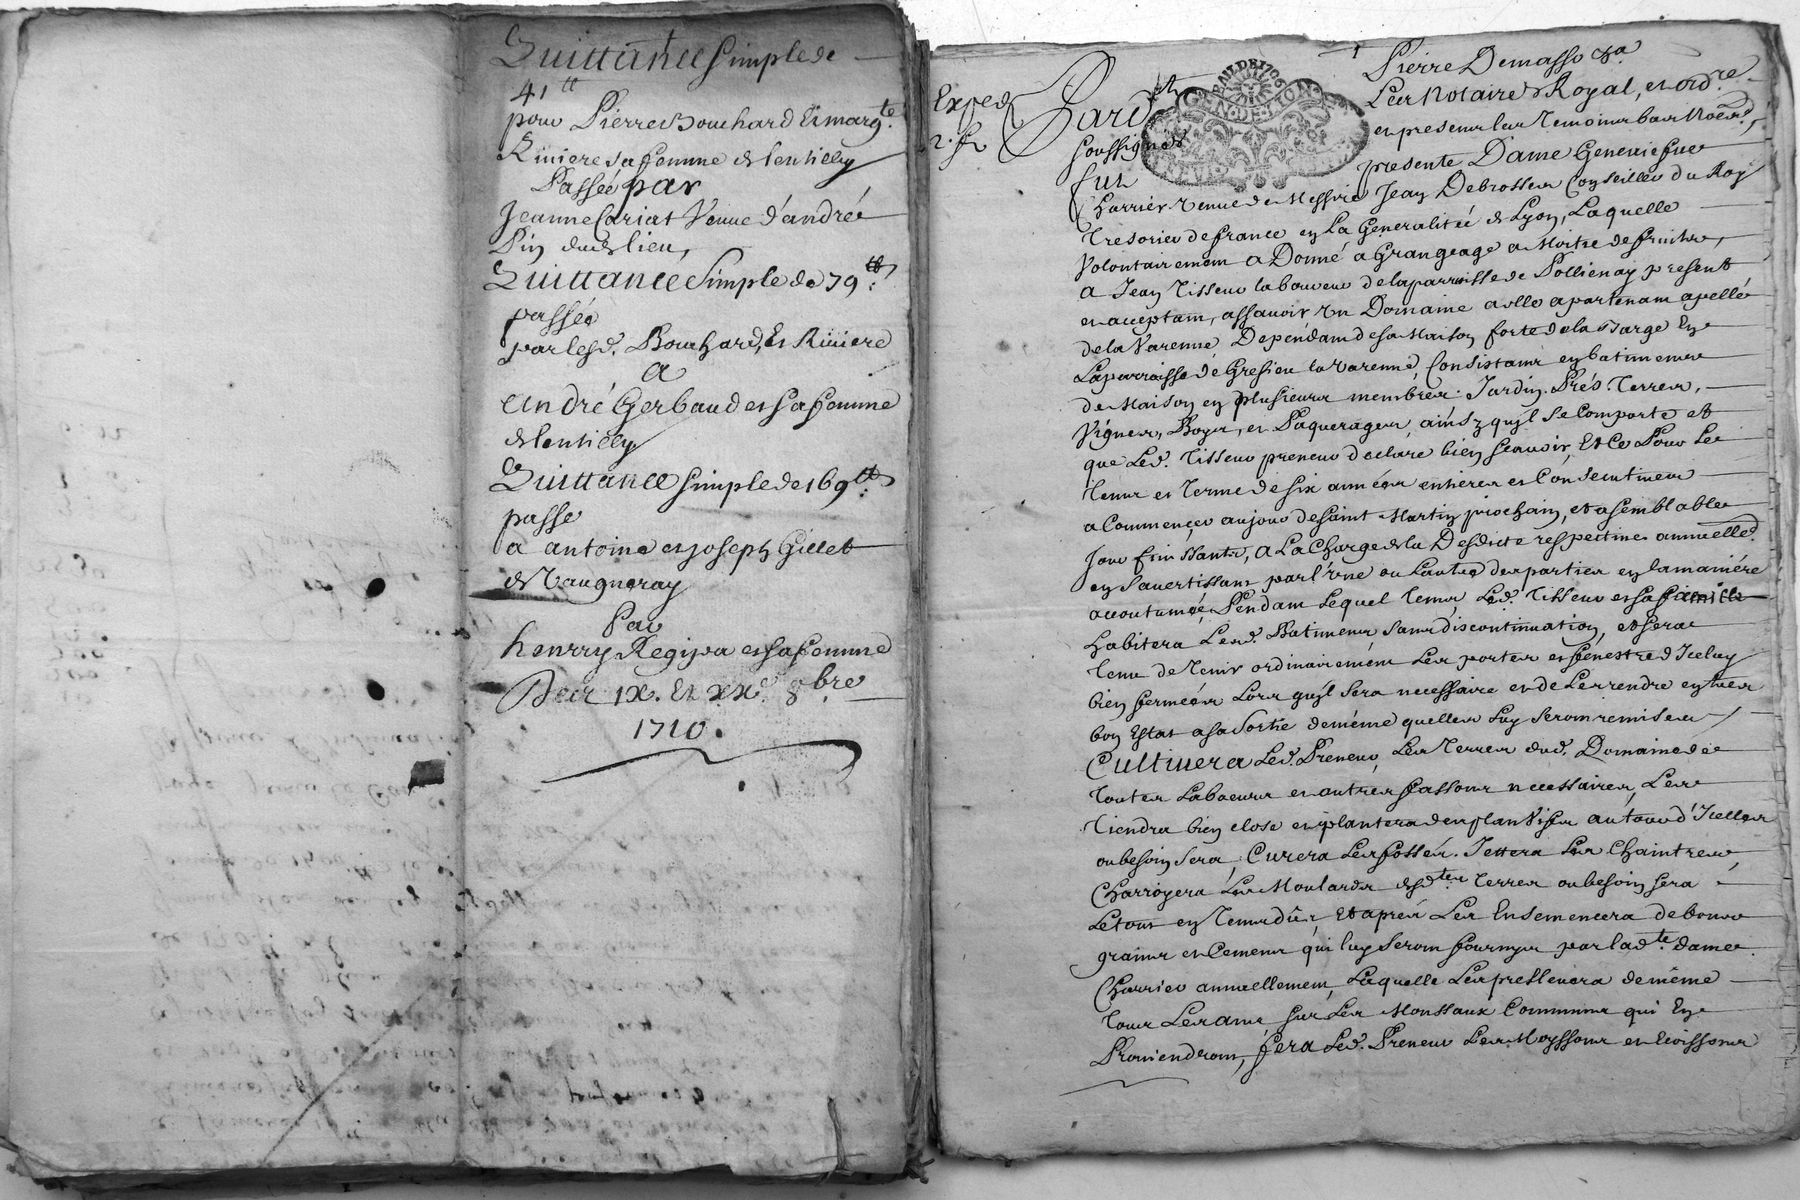 Quittance simple de
41 tt
pour Pierre Bouchard et marg.te
Riviere sa femme de Lentilly
Passée par
Jeanne Cariat Veuve d'andré
Pin dud. lieu,
Quittance Simple de 79 tt.
passée
par lesd. Bouchard, et Riviere
A
André Gerbaud et sa femme
de Lentilly
Quittance simple de 169 tt.
passe
a antoine et joseph Gillet
de Vaugneray
Par
henrry Regipa et sa femme
Des IX. Et XX.e 8.bre
1710.
Exped
2. f.
Pierre Demasso
Pard.t Les Notaire Royal, et ord.re
soussignés et presens les temoins bas Nommés,
fut presente Dame Geneviefve
Charrier veuve de Messire Jean Debrosses Conseiller du Roy
Tresorier de france en La Generalité de Lyon, Laquelle
Volontairement a Donné a Grangeage a Moitié de fruits,
a Jean Tisseur laboureur de la parroisse de Pollienay present
et acceptant, assavoir un Domaine a elle apartenant apellé
de la Varenne, Dependant de sa Maison forte de la Barge En
La parroisse de Gresieu la varenne, Consistant en batimens
de Maison en plusieurs membres. Jardin. Prés. Terres,
Vignes, Boys, et Paquerages, ainsy qu'jl se Comporte et
que Led. Tisseur preneur declare bien scavoir, Et Ce Pour Le
Tems et Terme de six années entieres et Consecutives
a Commencer au jour de saint Martin prochain, et a semblable
Jour finissants, A La Charge de la Desdicte respective annuelle
en s'avertissant par l'une ou l'autre des parties en la maniére
accoutumée, Pendant Lequel Tems, Led. Tisseur et sa famille
habitera Lesd. Batimens sans discontinuation, et sera
tenu de tenir ordinairement Les portes et fenestres d'Iceluy
bien fermées Lors qu'jl sera necessaire et de Les rendre en
bon Estat a sa sortie de même quelles Luy seront remises
Cultivera Led. Preneur, Les Terres dud. Domaine de
toutes Labeurs et autres fassons necessaires, Les
Tiendra bien close et plantera des plan Vifs autour d'Icelles
ou besoin sera, Curera Les fossés. Jettera Les Chaintres,
Charroyera Les Moulards desd.tes Terres ou besoin sera
Letout en Tems dû, Et aprés Les Ensemencera de bons
grains et Cemens qui luy seront fournys par lad.te dame
Charrier annuellement, Laquelle Les prellevera de même
tous Les ans sur Les Monssaux Communs qui En
Proviendront, fera Led. Preneur Les Moyssons et